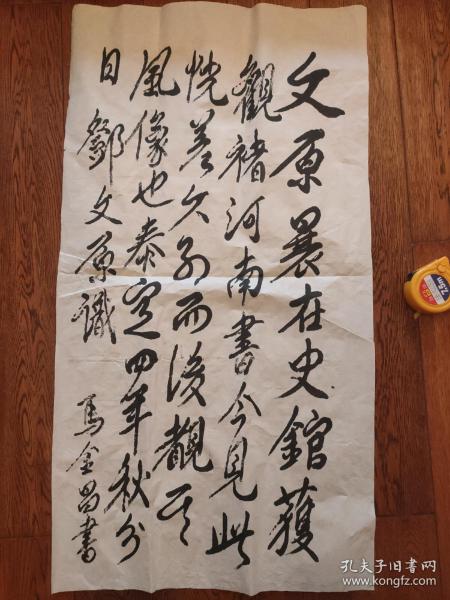 文原曩在史館獲
觀褚河南書今見此
恍若久别而後覩其
風像也泰定四年秋分
日鄧文原識
馬金昌書
孔夫子旧书网
www.kongfz.com